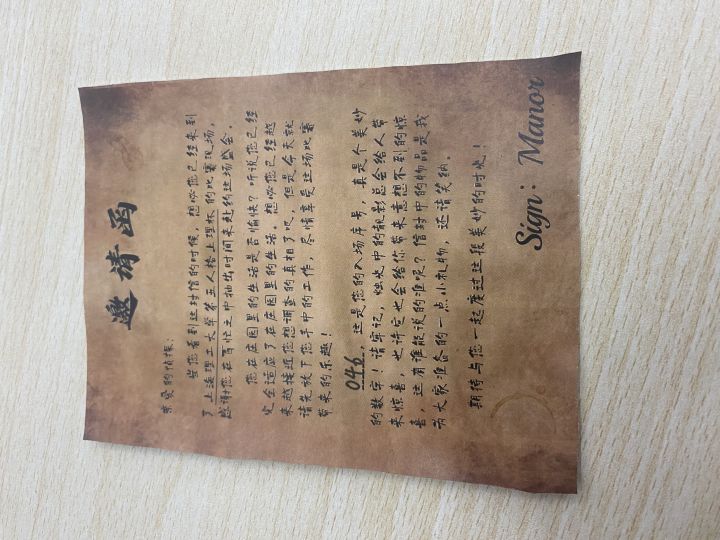 邀请函
亲爱的侦探:
当您看到这封信的时候,想必您已经来到
了上海理工大学第五人格上理杯的比赛现场,
感谢您在百忙之中抽出时间来赴约这场盛会。
您在庄园里的生活是否愉快?听说您已经
完全适应了在庄园里的生活。想必您已经越
来越接近您想调查的真相了吧,但是今天就
请先放下您手中的工作,尽情享受这场比赛
带来的乐趣!
046,这是您的入场序号,真是个美妙
的数字!请牢记,烛光中的靓影总会给人带
来惊喜,也许它也会给你带来意想不到的惊
喜,这有谁能说的准呢?信封中的物品是我
为大家准备的一点小礼物,还请笑纳。
期待与您一起度过这段美妙的时光!
Sign: Manor